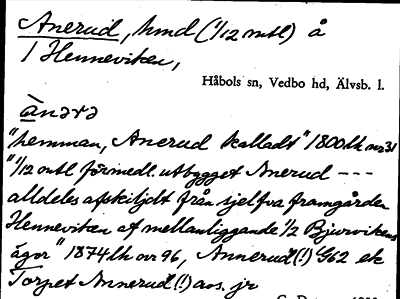 Anerud, hmd (1/12 mtl) å
/ Henneviken,
Håbols sn, Vedbo hd, Älvsb. l.
"hemman, Anerud kalladt" 1800 lk nr 31
"1/12 mtl förmedl. utbygget Anerud ---
alldeles afskiljdt från sjelfva framgården
Henneviken af mellanliggande 1/2 Bjurvikens
ägor" 1874 lh nr 96, Annerud (!) G62 ek
Torpet Annerud (!) avs. jr